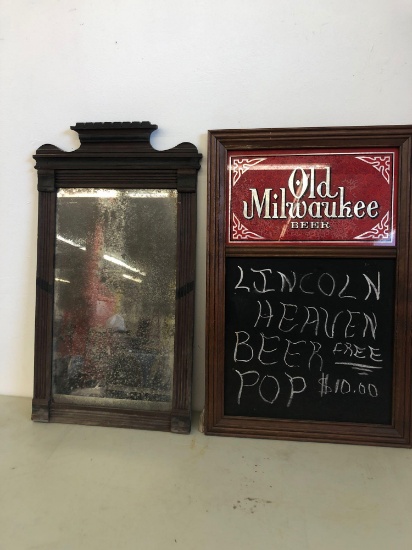 Old
Milwaukee
BEER
LINCOLN
HEAVEN
BEER FREE
POP $10.00